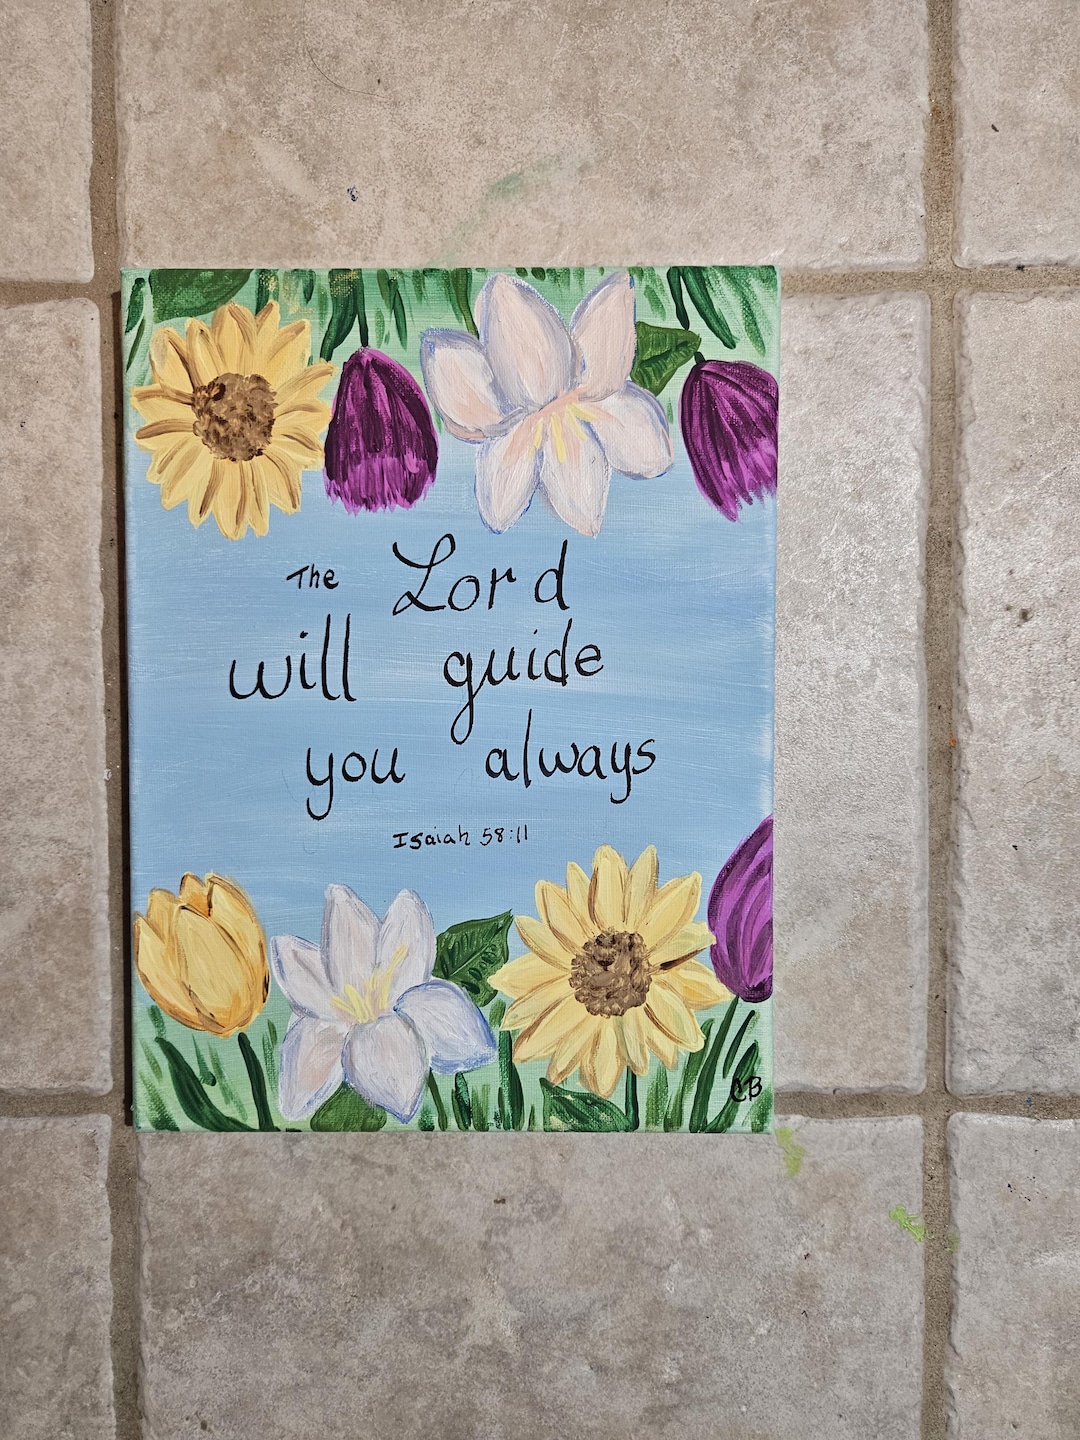 The Lord
will guide
you always
Isaiah 58:11
CB